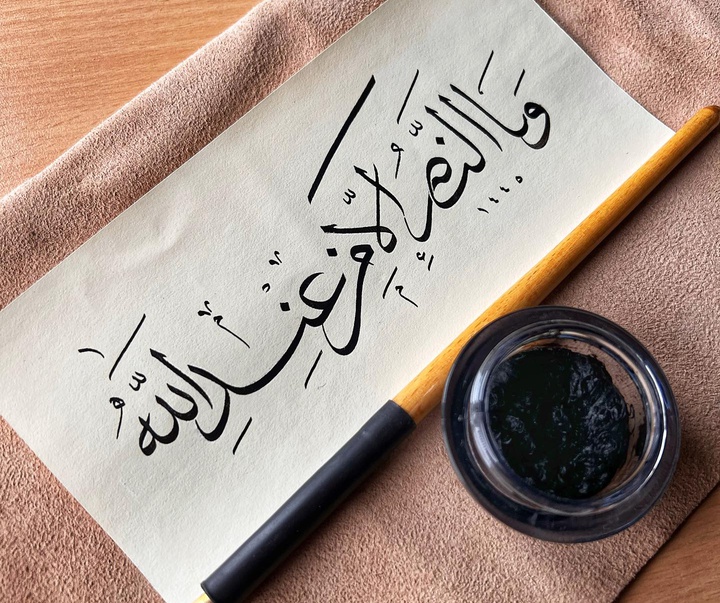 وَمَا النَّصْرُ إِلَّا مِنْ عِنْدِ اللَّهِ
١٤٤٥